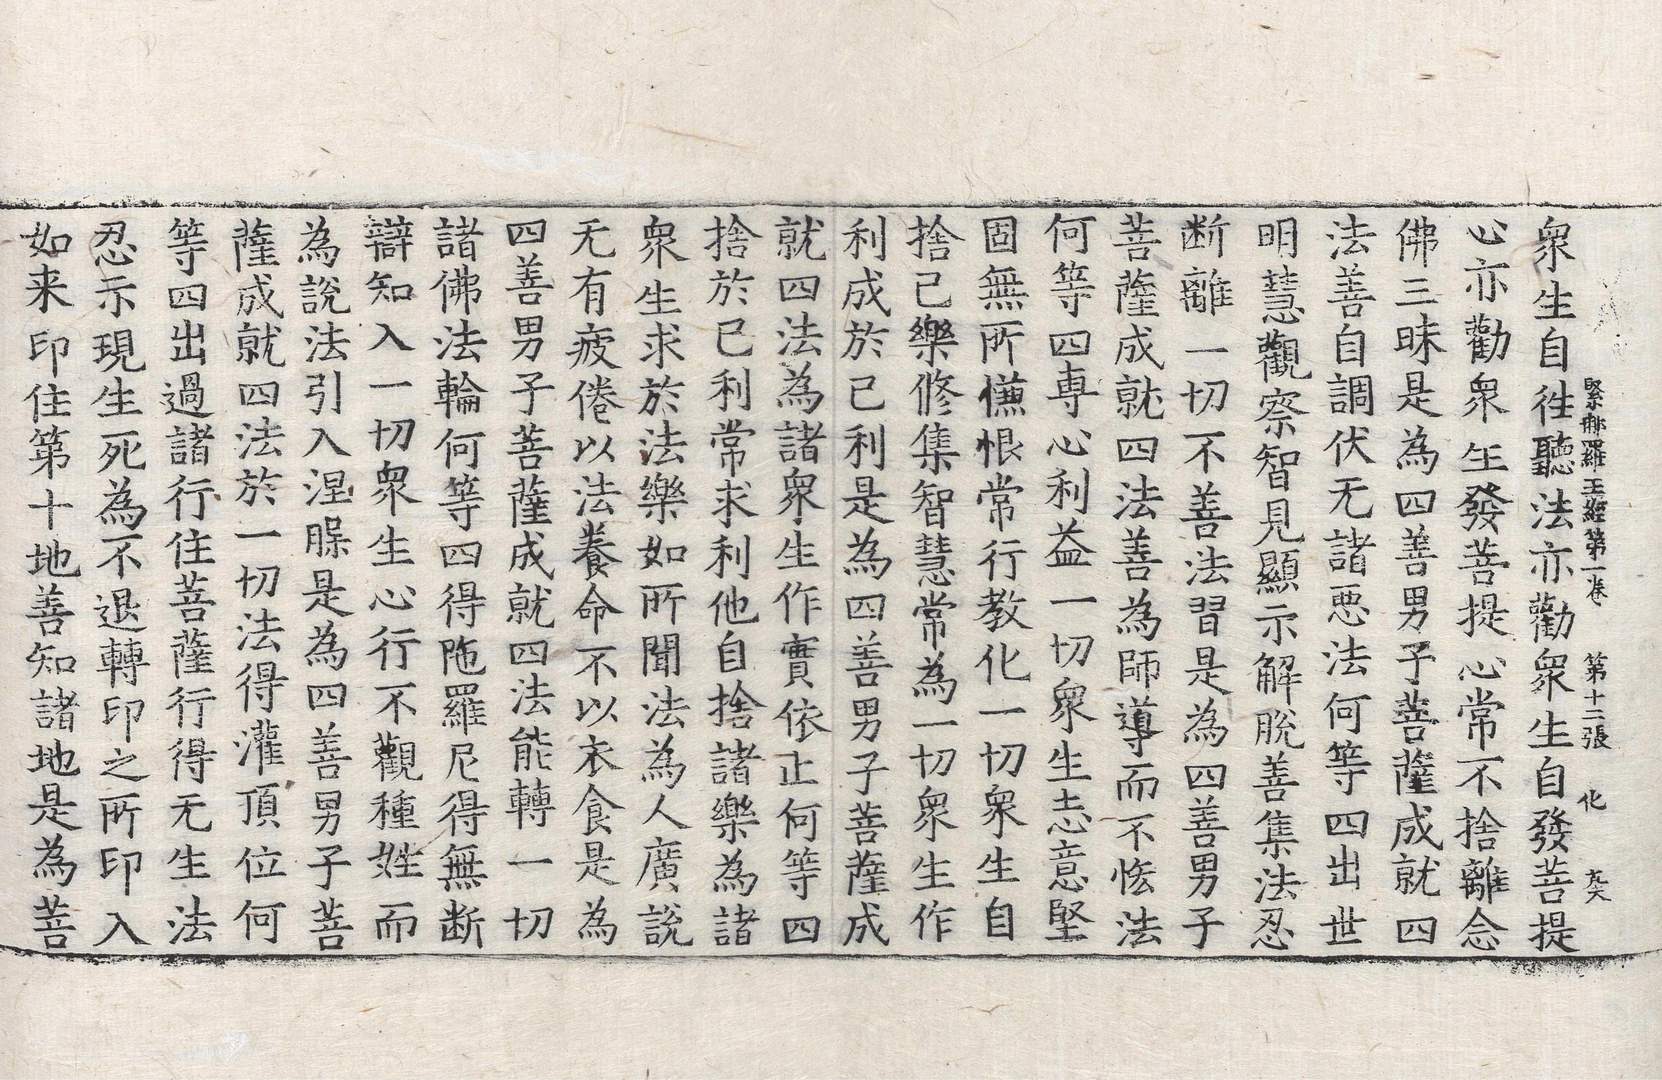 緊那羅王經第一卷　第十二張　化
衆生自徃聽法亦勸衆生自發菩提
心亦勸衆生發菩提心常不捨離念
佛三昧是為四善男子菩薩成就四
法善自調伏无諸惡法何等四出世
明慧觀察智見顯示解脫善集法忍
断離一切不善法習是為四善男子
菩薩成就四法善為師導而不悋法
何等四專心利益一切衆生志意堅
固無所慊恨常行教化一切衆生自
捨己樂修集智慧常為一切衆生作
利成於己利是為四善男子菩薩成
就四法為諸衆生作實依止何等四
捨於己利常求利他自捨諸樂為諸
衆生求於法樂如所聞法為人廣說
无有疲倦以法養命不以衣食是為
四善男子菩薩成就四法能轉一切
諸佛法輪何等四得陁羅尼得無断
辯知入一切衆生心行不觀種姓而
為說法引入涅槃是為四善男子菩
薩成就四法於一切法得灌頂位何
等四出過諸行住菩薩行得无生法
忍示現生死為不退轉印之所印入
如来印住第十地善知諸地是為菩